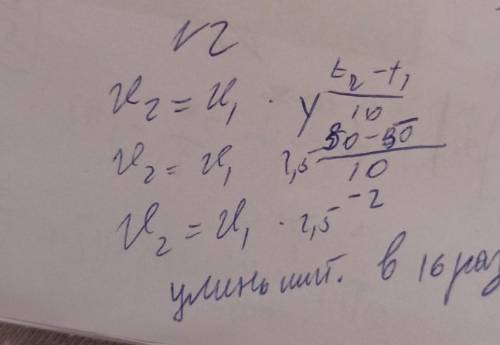 √2
υ₂ = υ₁ · γ^(t₂-t₁)/10
υ₂ = υ₁ 2,5^(30-50)/10
υ₂ = υ₁ · 2,5^-2
уменьшит. в 16 раз